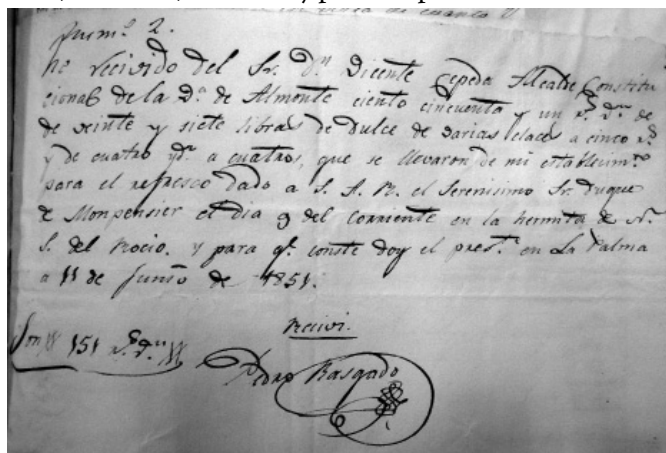 Num.º 2.
He recivido del Sr. Dn. Vicente Cepeda Alcalde Constitu
cional de la V.ª de Almonte ciento cincuenta y un r.s v.n de
de veinte y siete libras de dulce de varias claces a cinco r.s
y de cuatro yd.m a cuatros, que se llevaron de mi establecim.to
para el refresco dado a S. A. R. el Serenisimo Sr. Duque
de Monpensier el dia 9 del corriente en la hermita de N.
S. del Rocio. y para q.e conste doy el pres.te en La Palma
a 11 de Junio de 1851.
Recivi.
Son 151 r.s v.n
Pedro Rasgado